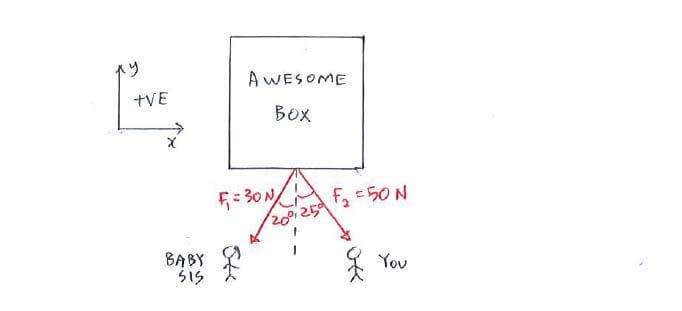 y
+VE
x
AWESOME
BOX
F₁ = 30 N
F₂ = 50 N
20°
25°
BABY
SIS
YOU